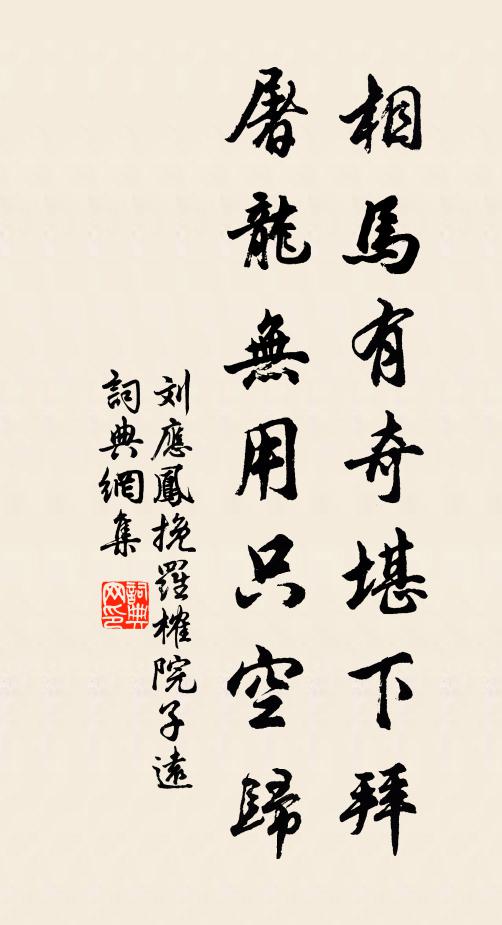 相馬有奇堪下拜
屠龍無用只空歸
刘應鳳挽羅榷院子遠
詞典網集
詞典网印